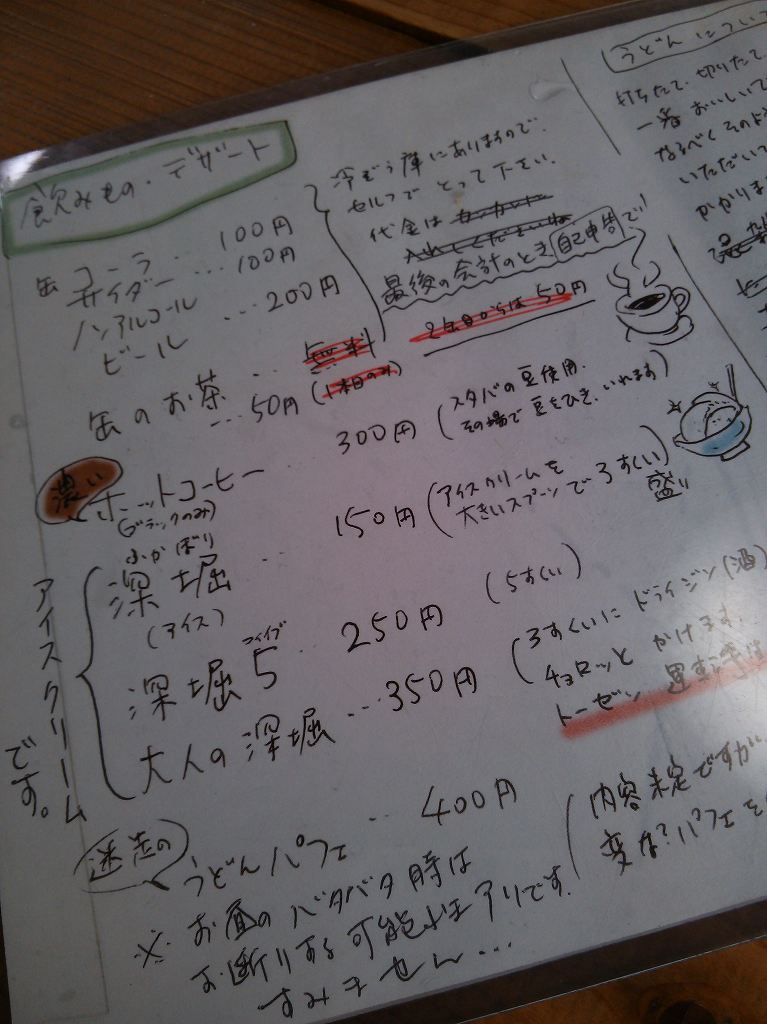 飲みもの・デザート
缶 コーラ … 100円
サイダー … 100円
ノンアルコールビール … 200円
冷ぞう庫にありますので、
セルフでとって下さい。
代金は
最後の会計のとき自己申告で!
缶のお茶 … 無料 (1本目のみ)
2缶目からは50円
… 50円
濃い ホットコーヒー … 300円 (スタバの豆使用。
その場で豆をひき、いれます)
(ブラックのみ)
ふかぼり
深堀 … 150円 (アイスクリームを
大きいスプーンで3すくい)
盛り
(アイス)
ファイブ
深堀5 … 250円 (5すくい)
大人の深堀 … 350円 (3すくいにドライジン(酒)
チョロッとかけます。
トーゼン 運転手は
アイスクリームです。
迷走の うどんパフェ … 400円 (内容未定ですが
変な?パフェを
※ お昼のバタバタ時は
お断りする可能性はアリです。
すみません…
うどんについて
打ちたて、切りたて、
一番おいしいで
なるべくそのよ
いただいて
かかりま